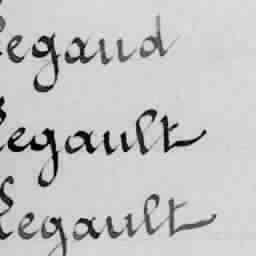 Legaud
Legault
Legault